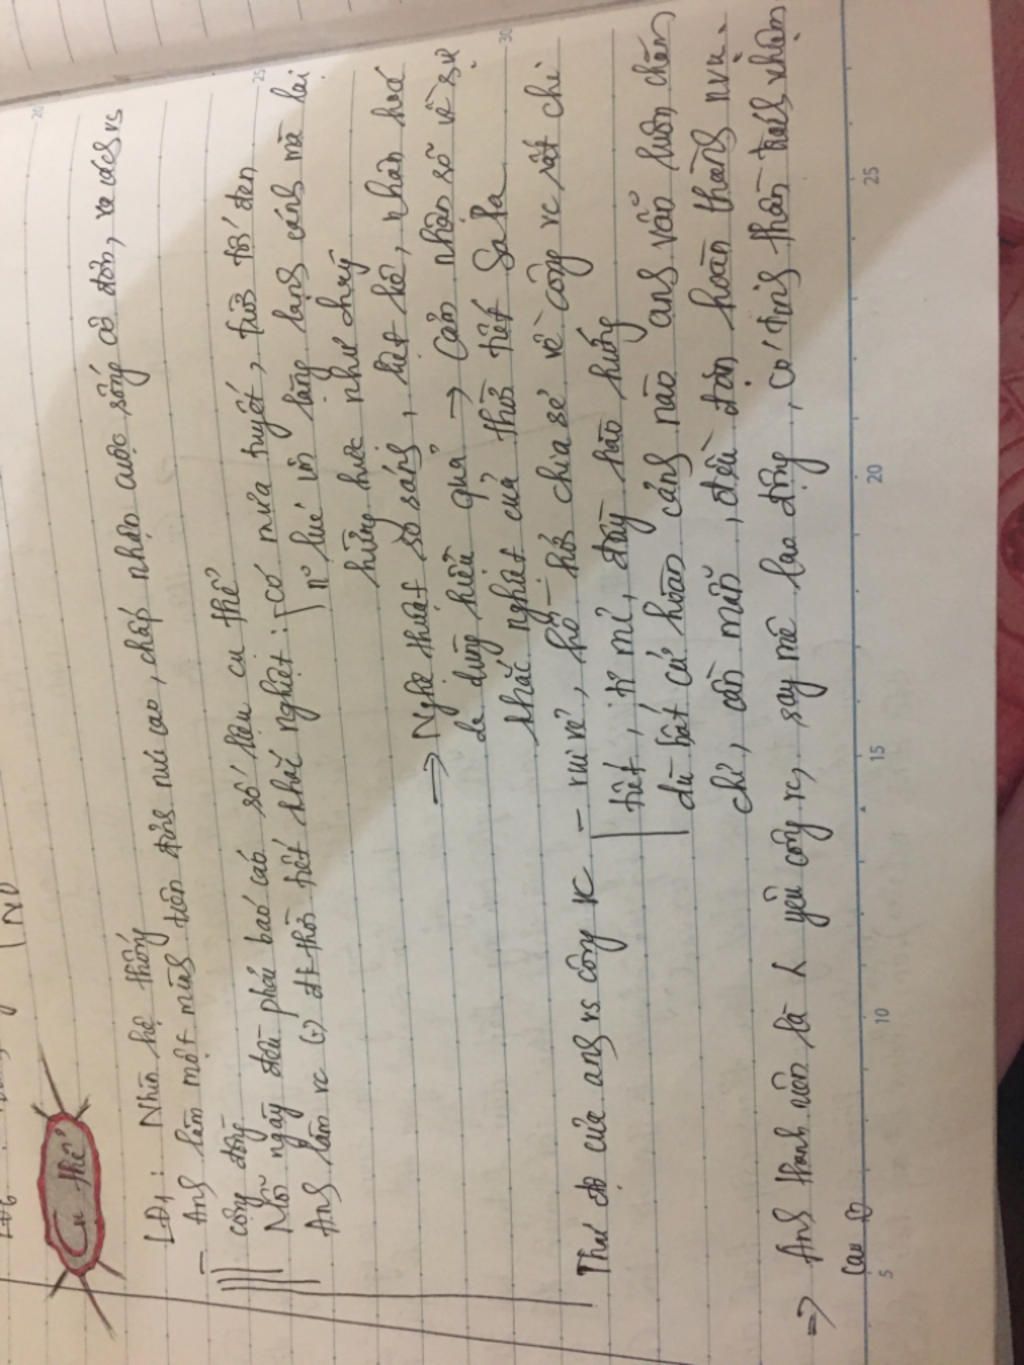 Cụ thể
LĐ1: Nhìn hệ thống
- Anh làm một mình trên đỉnh núi cao, chấp nhận cuộc sống cô đơn, xa cách vs
cộng đồng
Mỗi ngày đều phải báo cáo số liệu cụ thể
Anh làm vc (-) đk thời tiết khắc nghiệt: có mưa tuyết, trời tối đen
lúc im lặng lạnh cóng mà lại
hừng hực như cháy
=> Nghệ thuật so sánh, liệt kê, nhân hoá
dc dùng hiệu quả -> Cảm nhận rõ về sự
khắc nghiệt của thời tiết Sa Pa
Thái độ của anh vs công vc - vui vẻ, hồ hởi chia sẻ về công vc rất chi
tiết, tỉ mỉ, đầy hào hứng
dù bất cứ hoàn cảnh nào anh vẫn luôn chăm
chỉ, cần mẫn, đều đặn hoàn thành nvụ.
=> Anh thanh niên là yêu công vc, say mê lao động, có tinh thần trách nhiệm
cao
20
25
30
5
10
15
20
25